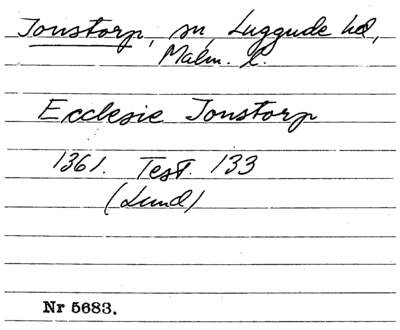 Jonstorp, sn, Luggude hd,
Malm. l.
Ecclesie Jonstorp
1361. Test. 133
(Lund)
Nr 5683.